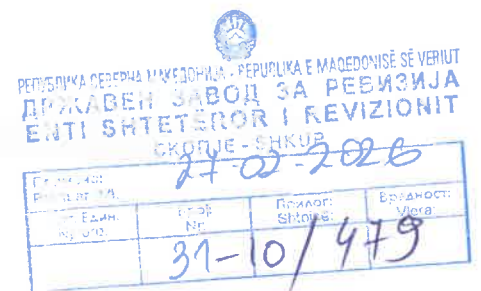 РЕПУБЛИКА СЕВЕРНА МАКЕДОНИЈА - REPUBLIKA E MAQEDONISË SË VERIUT
ДРЖАВЕН ЗАВОД ЗА РЕВИЗИЈА
ENTI SHTETËROR I REVIZIONIT
СКОПЈЕ - SHKUP
27-02-2026
Един. Број: Прилог: Вредност:
Nr. Shtojca: Vlera:
31-10/479